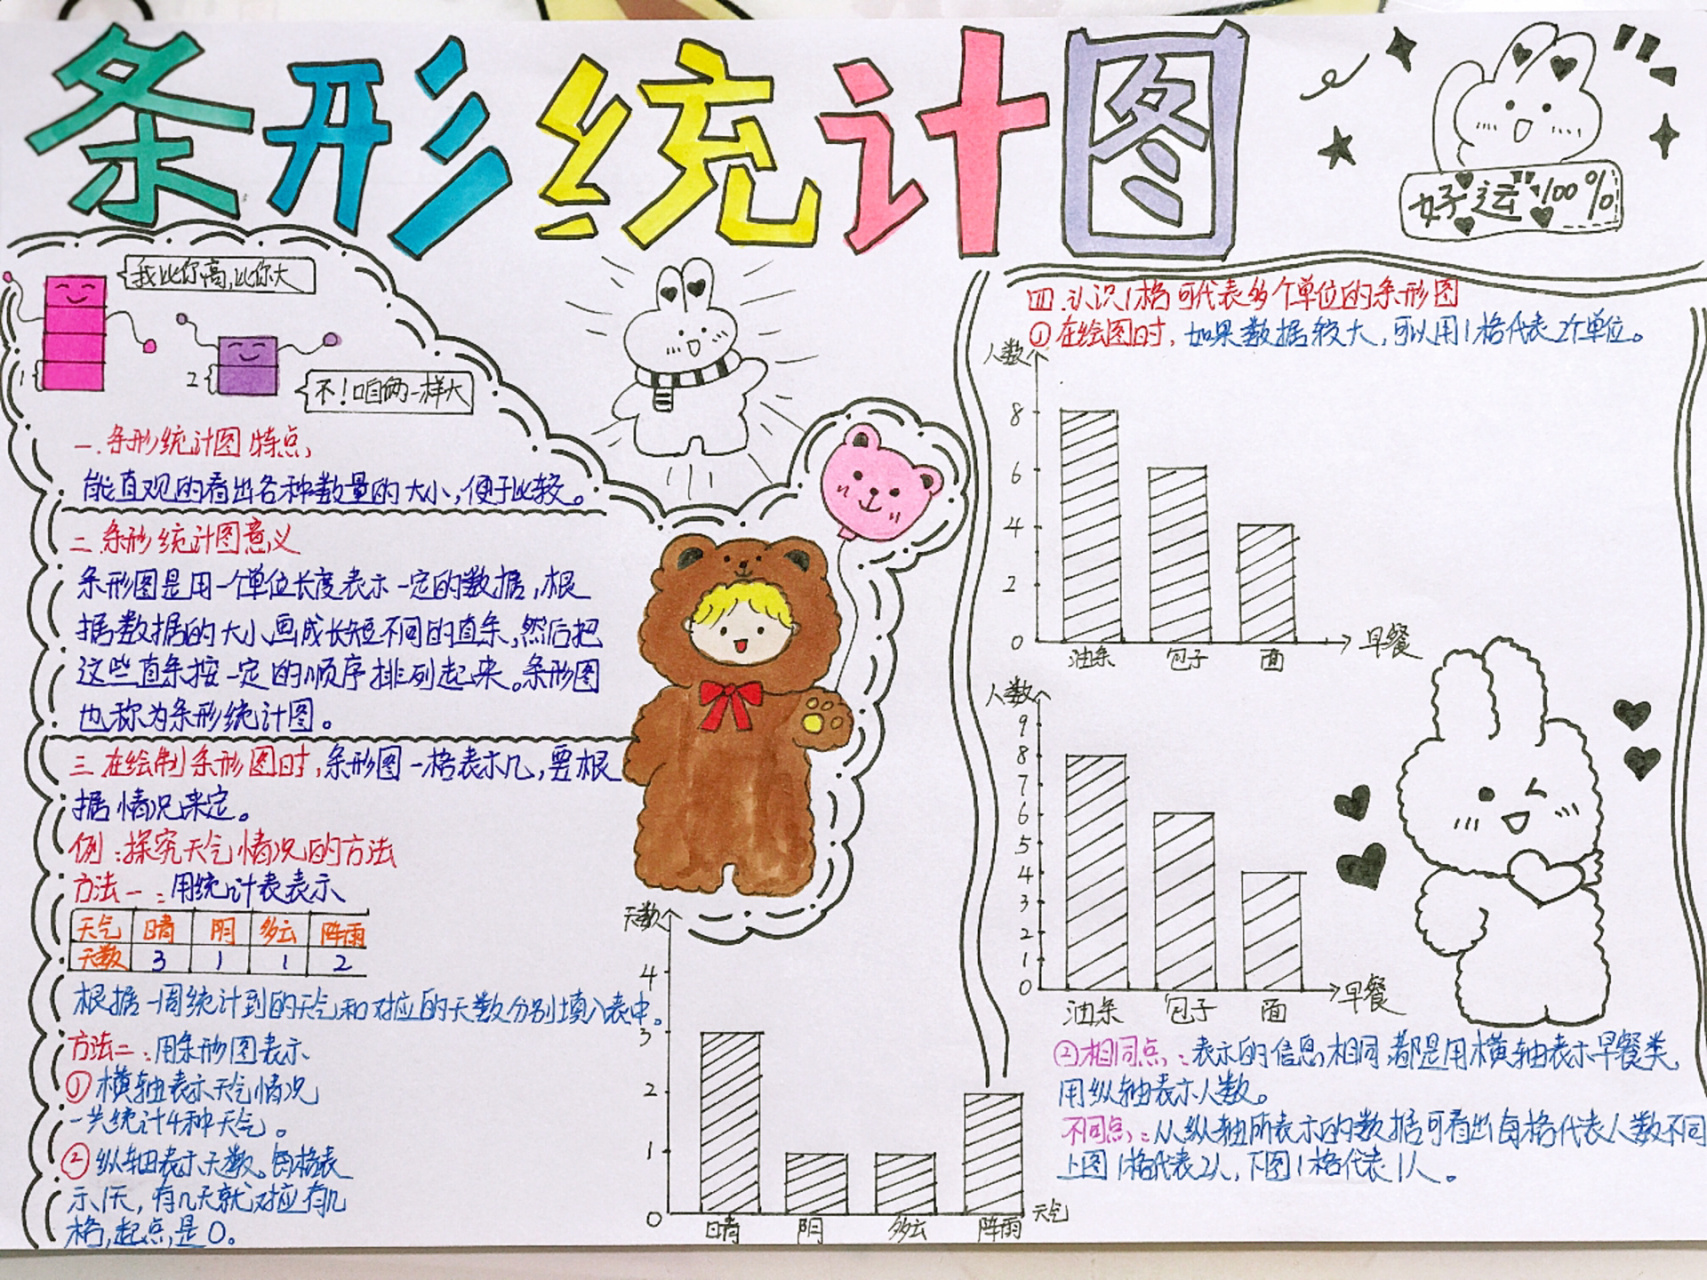 条形统计图
好运100%
我比你高,比你大
1
2
不!咱俩一样大
一.条形统计图特点:
能直观的看出各种数量的大小,便于比较。
二.条形统计图意义
条形图是用一个单位长度表示一定的数据,根
据数据的大小画成长短不同的直条,然后把
这些直条按一定的顺序排列起来。条形图
也称为条形统计图。
三.在绘制条形图时,条形图一格表示几,要根
据情况来定。
例:探究天气情况的方法
方法一:用统计表表示
天气 晴 阴 多云 阵雨
天数 3 1 1 2
根据一周统计到的天气和对应的天数分别填入表中。
方法二:用条形图表示
①横轴表示天气情况
一共统计4种天气。
②纵轴表示天数。每格表
示1天,有几天就对应有几
格,起点是0。
天数
4
3
2
1
0
晴 阴 多云 阵雨 天气
四.认识1格可代表多个单位的条形图
①在绘图时,如果数据较大,可以用1格代表2个单位。
人数
8
6
4
2
0
油条 包子 面 早餐
人数
9
8
7
6
5
4
3
2
1
0
油条 包子 面 早餐
②相同点:表示的信息相同都是用横轴表示早餐类
用纵轴表示人数。
不同点:从纵轴所表示的数据可看出每格代表人数不同
上图1格代表2人,下图1格代表1人。